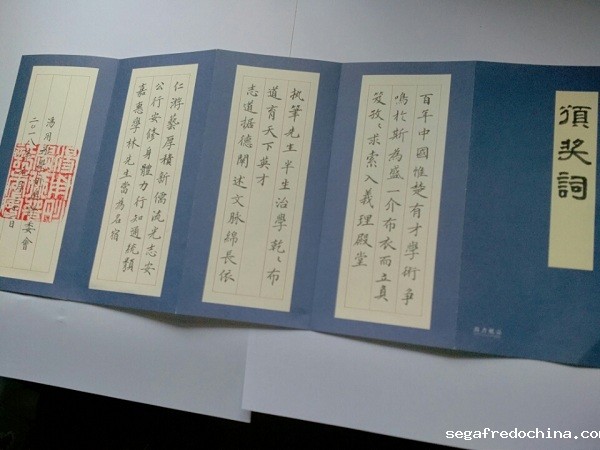 頒奖詞
百年中國惟楚有才學術争
鳴於斯為盛一介布衣而立真
笈孜々求索入義理殿堂
执筆先生半生治學乾々布
道育天下英才
志道据德闡述文脉綿長依
仁游藝厚積新儒流光志安
公行安修身體力行知通統類
嘉惠學林先生當為名宿
委會
二〇一
www.segafredochina.com